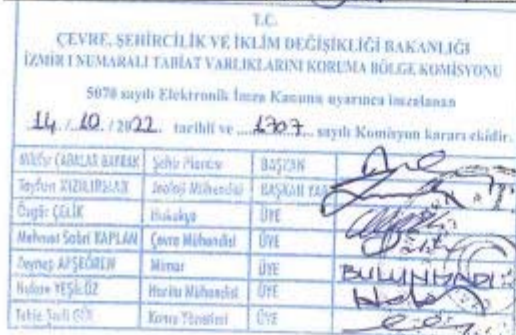 T.C.
ÇEVRE, ŞEHİRCİLİK VE İKLİM DEĞİŞİKLİĞİ BAKANLIĞI
İZMİR I NUMARALI TABİAT VARLIKLARINI KORUMA BÖLGE KOMİSYONU
5070 sayılı Elektronik İmza Kanunu uyarınca imzalanan
14 / 10 / 2022 tarihli ve 1707 sayılı Komisyon kararı ekidir.
BAYRAK Şehir Plancısı BAŞKAN
Tayfun KIZILIRMAK Jeoloji Mühendisi BAŞKAN YAR
Özgür ÇELİK Hukukçu ÜYE
Mehmet Sabri KAPLAN Çevre Mühendisi ÜYE
Zeynep Mimar ÜYE BULUNMADI
YEŞİLÖZ Harita Mühendisi ÜYE
Kamu Yönetimi ÜYE